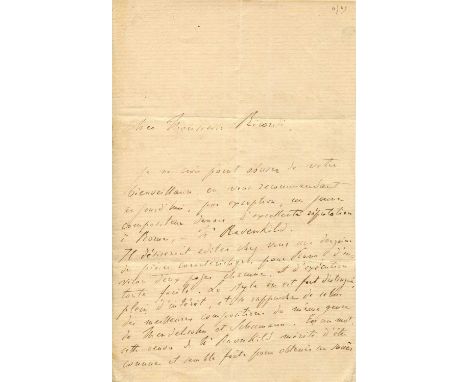 Cher Monsieur Ricordi,
Je ne crois point abuser de votre
bienveillance en vous recommandant
aujourd'hui, par exception, un jeune
compositeur danois d'excellente réputation
à Rome, – Mr Ravnkild.
Il désireroit editer chez vous une dizaine
de pièces caractéristiques, pour Piano d'en-
viron deux pages chacune, et d'exécution
toute facile. Le style en est fort distingué
plein d'intérêt, et se rapproche de celui
des meilleures compositions du même genre
de Mendelsohn et Schumann. En un mot,
cette oeuvre de Mr Ravnkild mérite d'être
connue et semble faite pour obtenir un succès